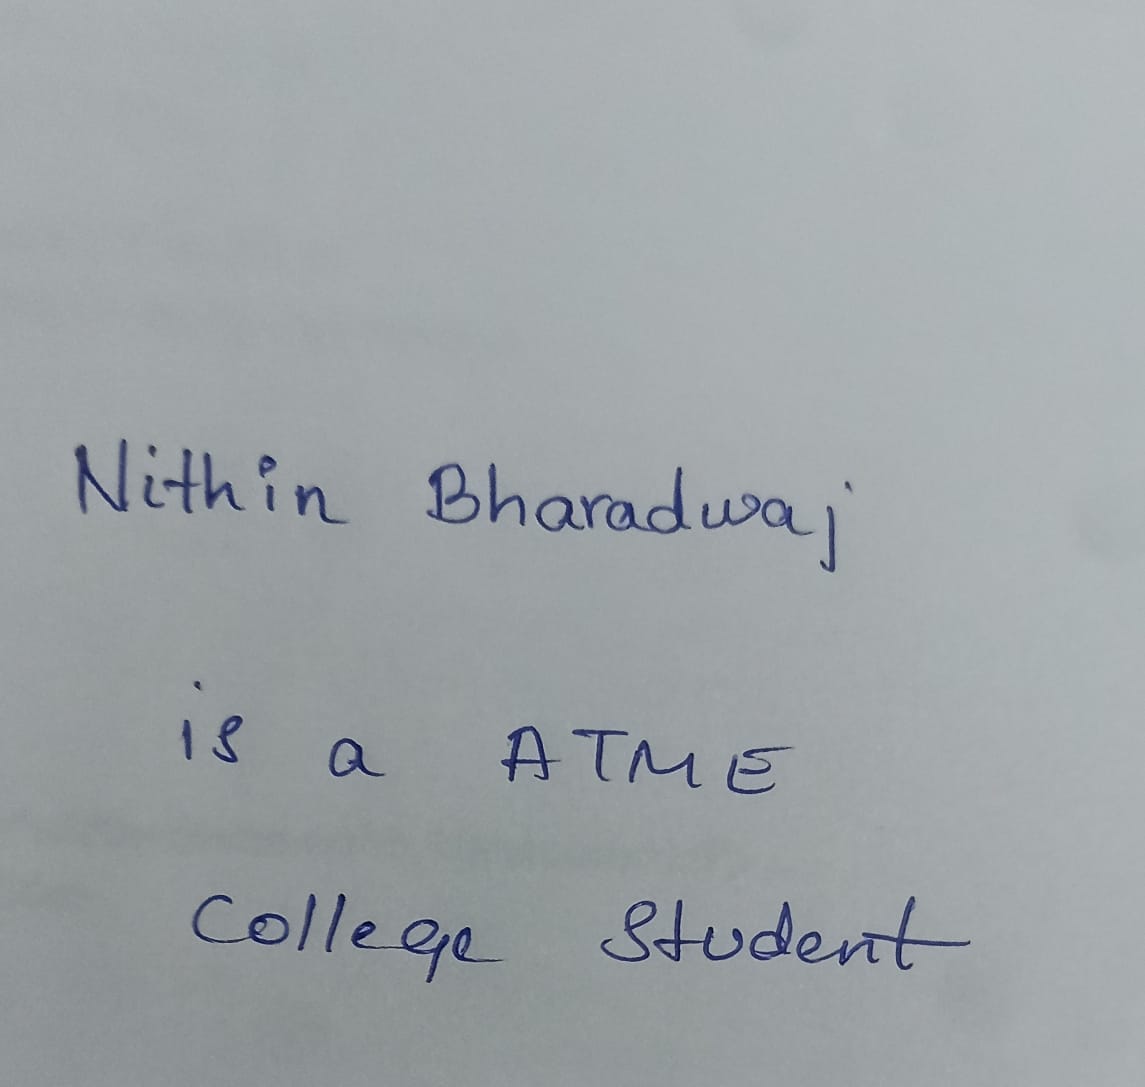 Nithin Bharadwaj
is a ATME
College Student